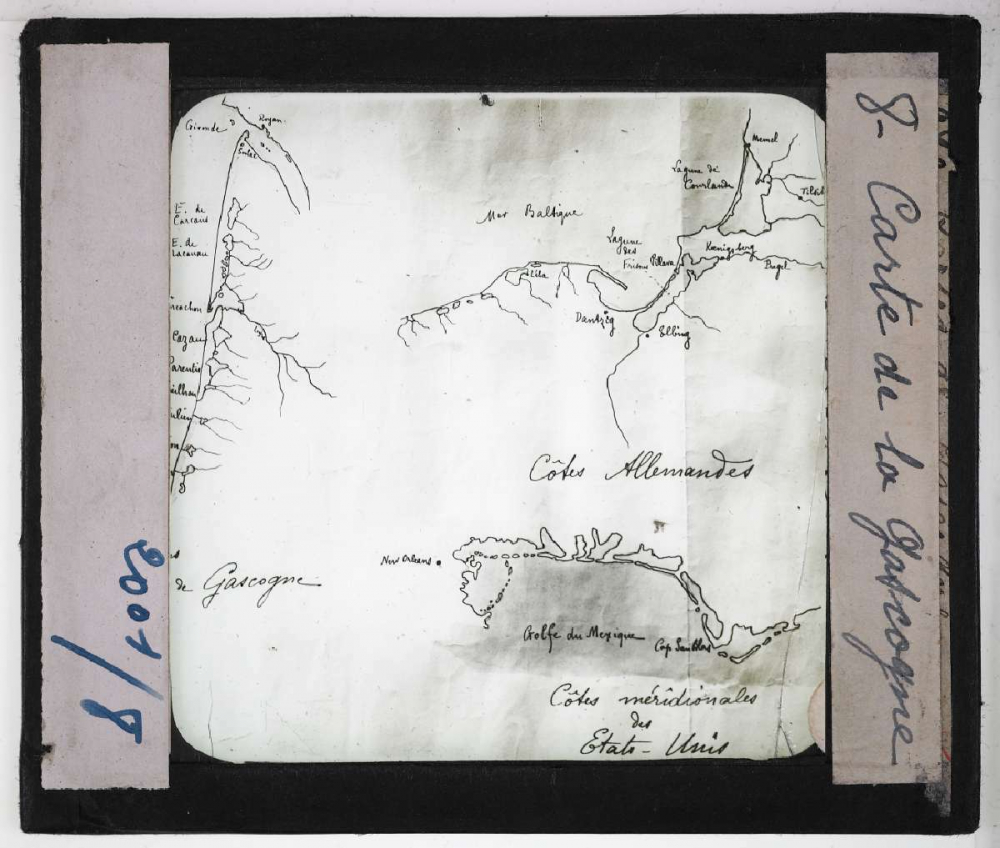 Gironde
Royan
E. de
Carcans
E. de
Lacanau
Cazau
Parentis
de Gascogne
Mer Baltique
Lagune de
Courlande
Memel
Tilsit
Lagune
des
Pillau
Kœnigsberg
Pregel
Dantzig
Elbing
Côtes Allemandes
New Orleans
Golfe du Mexique
Cap San Blas
Côtes méridionales
des
Etats-Unis
8- Carte de la Gascogne
8/1002